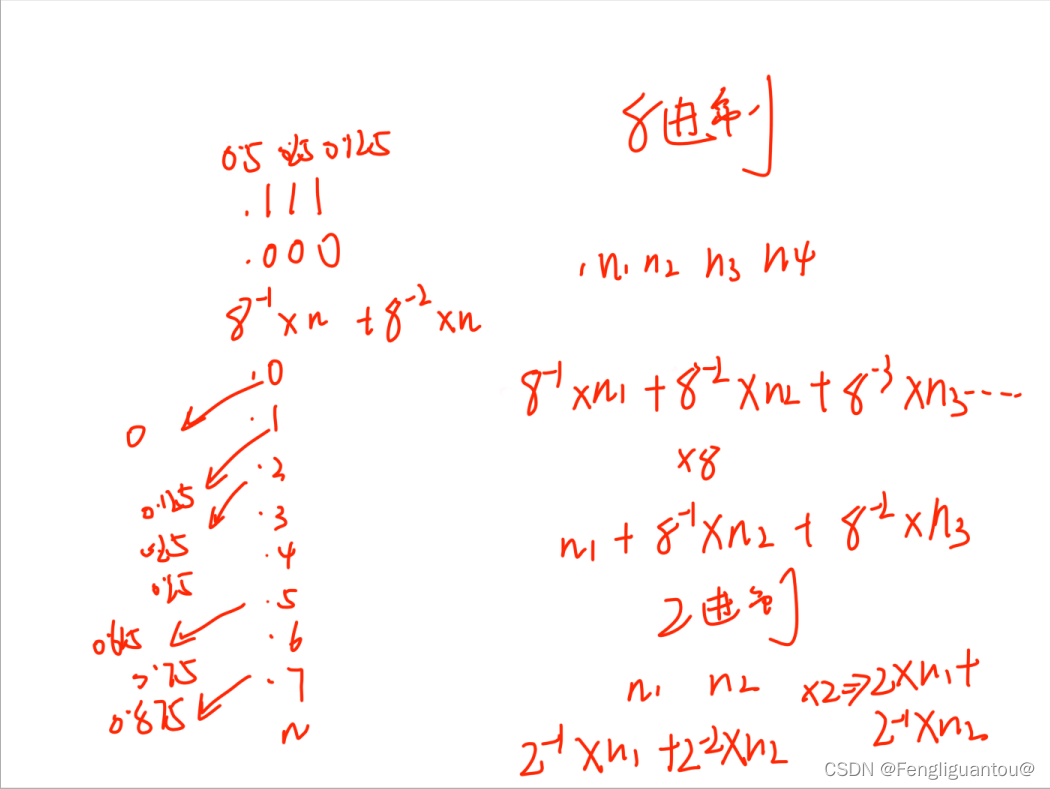 0.5 0.25 0.125
.111
.000
8⁻¹×n +8⁻²×n
.0
0
.1
.2
0.125
.3
.4
.5
.6
0.75
.7
0.875
n
8进制
.n₁ n₂ n₃ n4
8⁻¹×n₁+8⁻²×n₂+8⁻³×n₃----
×8
n₁+8⁻¹×n₂+8⁻²×n₃
2进制
n₁ n₂ ×2⇒2×n₁+
2⁻¹×n₂
2⁻¹×n₁+2⁻²×n₂
CSDN @Fengliguantou@